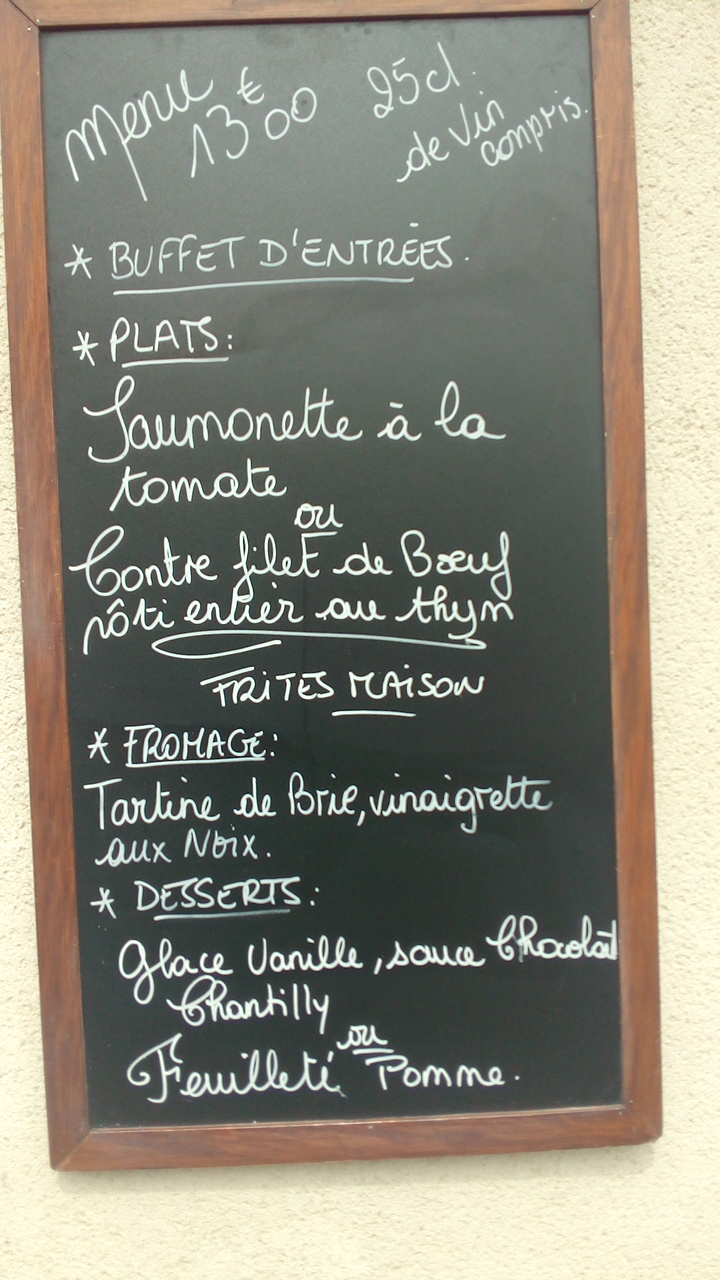 Menu 13€00 25cl.
de Vin
compris.
* BUFFET D'ENTRÉES.
* PLATS:
Saumonette à la
tomate
ou
Contre filet de Bœuf
rôti entier au thym
FRITES MAISON
* FROMAGE:
Tartine de Brie, vinaigrette
aux Noix.
* DESSERTS:
Glace Vanille, sauce Chocolat
Chantilly
ou
Feuilleté Pomme.